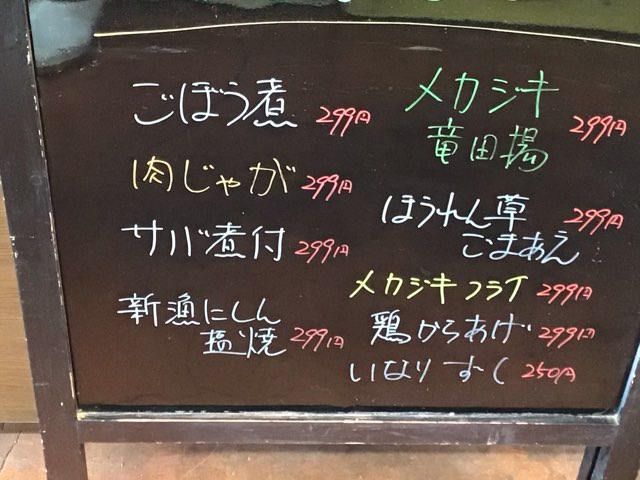 ごぼう煮 299円
肉じゃが 299円
サバ煮付 299円
新漁にしん
塩焼 299円
メカジキ
竜田揚 299円
ほうれん草 299円
ごまあえ
メカジキフライ 299円
鶏からあげ 299円
いなりずし 250円